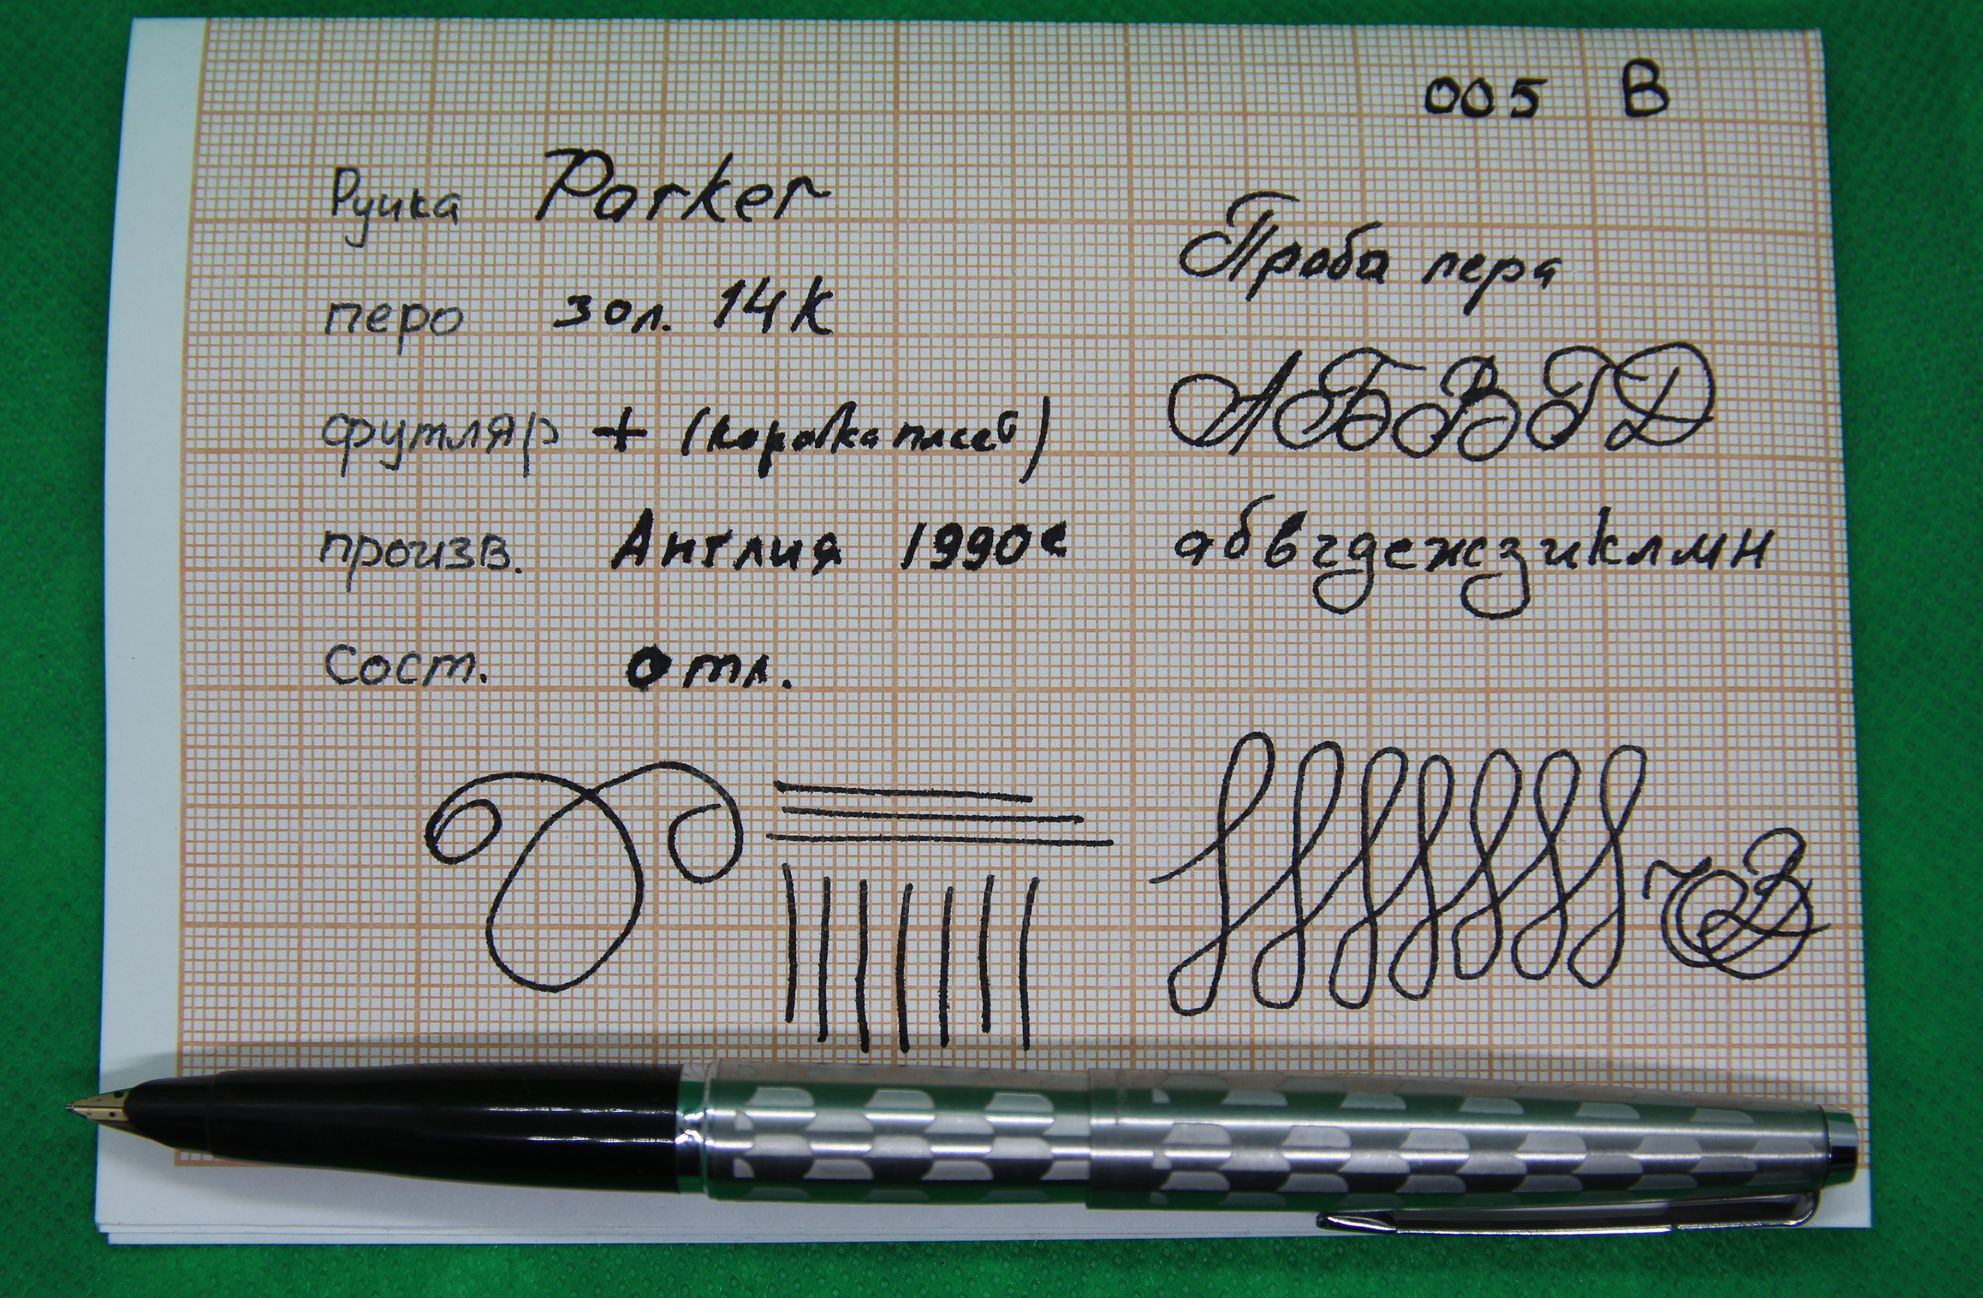 005 В
Ручка Parker
перо зол. 14К
футляр + (коробка пласт)
произв. Англия 1990е
сост. отл.
Проба пера
АБВГД
абвгдежзиклмн